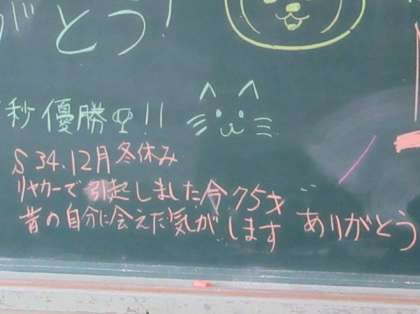 がとう!
秒優勝!!
S34.12月 冬休み
リヤカーで引起しました 今75才
昔の自分に会えた気がします ありがとう